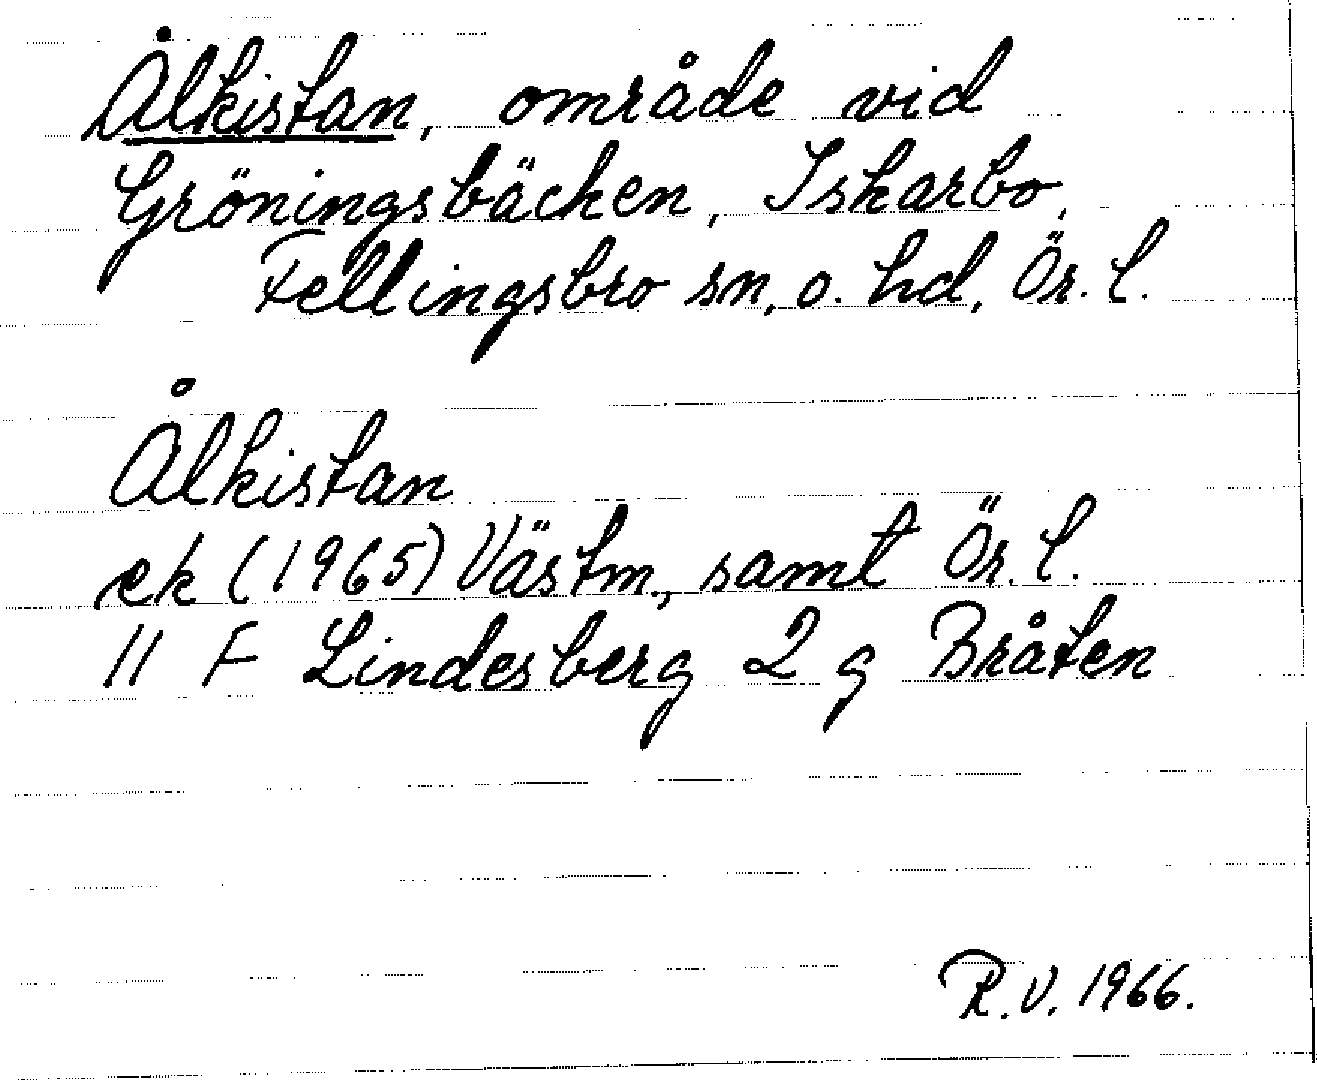 Ålkistan, område vid
Gröningsbäcken, Iskarbo,
Fellingsbro sn, o. hd, Ör. l.
Ålkistan
ek (1965) Västm., samt Ör. l.
11 F Lindesberg 2 g Bråten
R.V. 1966.